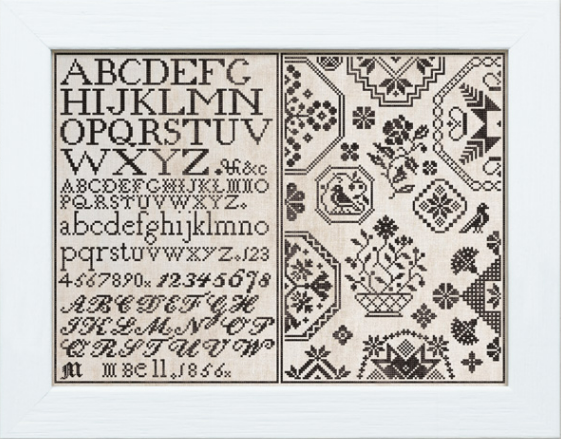 ABCDEFG
HIJKLMN
OPQRSTUV
WXYZ.&c
ABCDEFGHIJKLMNO
PQRSTUVWXYZ.
abcdefghijklmno
pqrstuvwxyz.123
4567890x 12345678
ABCDEFGH
IKLMNOP
QRSTUVW
M M Bell.1856x